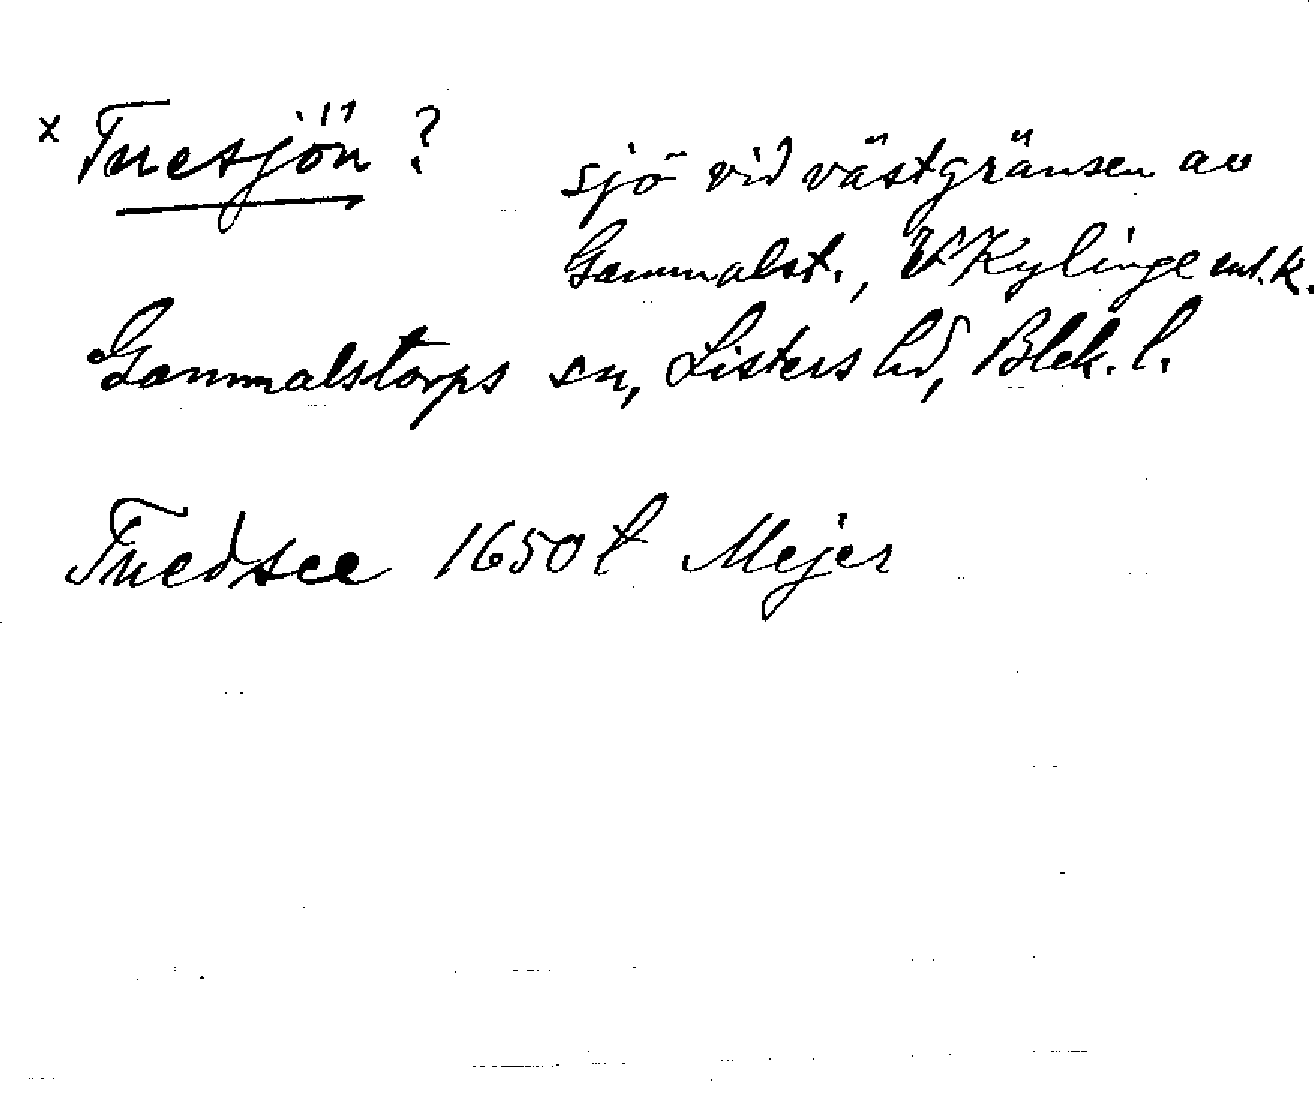 x Tnesjön ?
sjö vid västgränsen av
Gammalst., V Kylinge enl. k.
Gammalstorps sn, Listers hd, Blek. l.
Tnedsee 1650 t Mejer